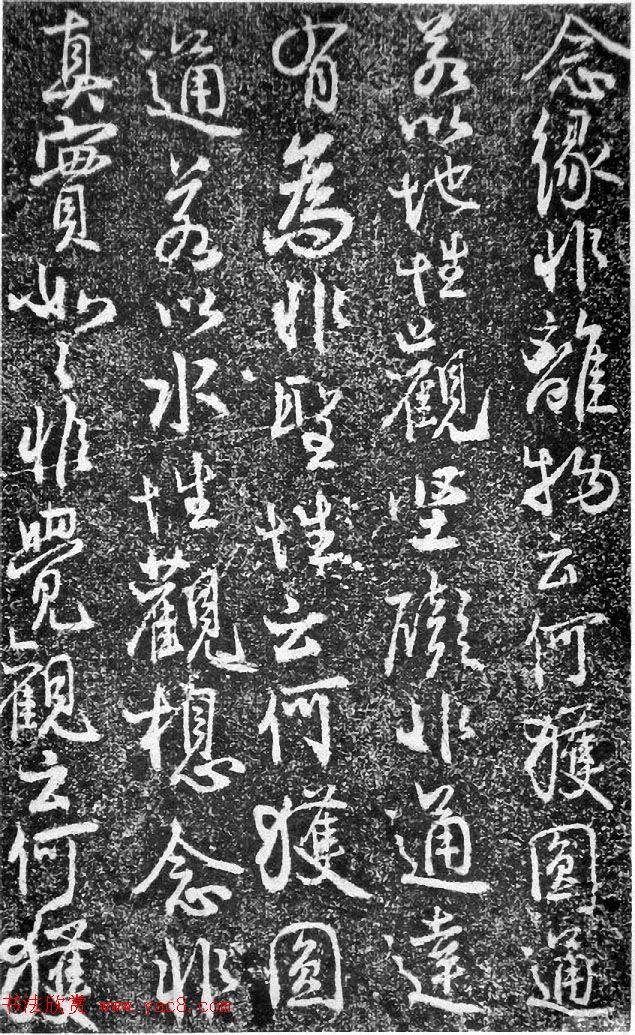 念緣非離物云何獲圓通
若以地性觀堅礙非通達
有為非聖性云何獲圓
通若以水性觀想念非
真實如々非覺觀云何獲
书法欣赏 www.yac8.com